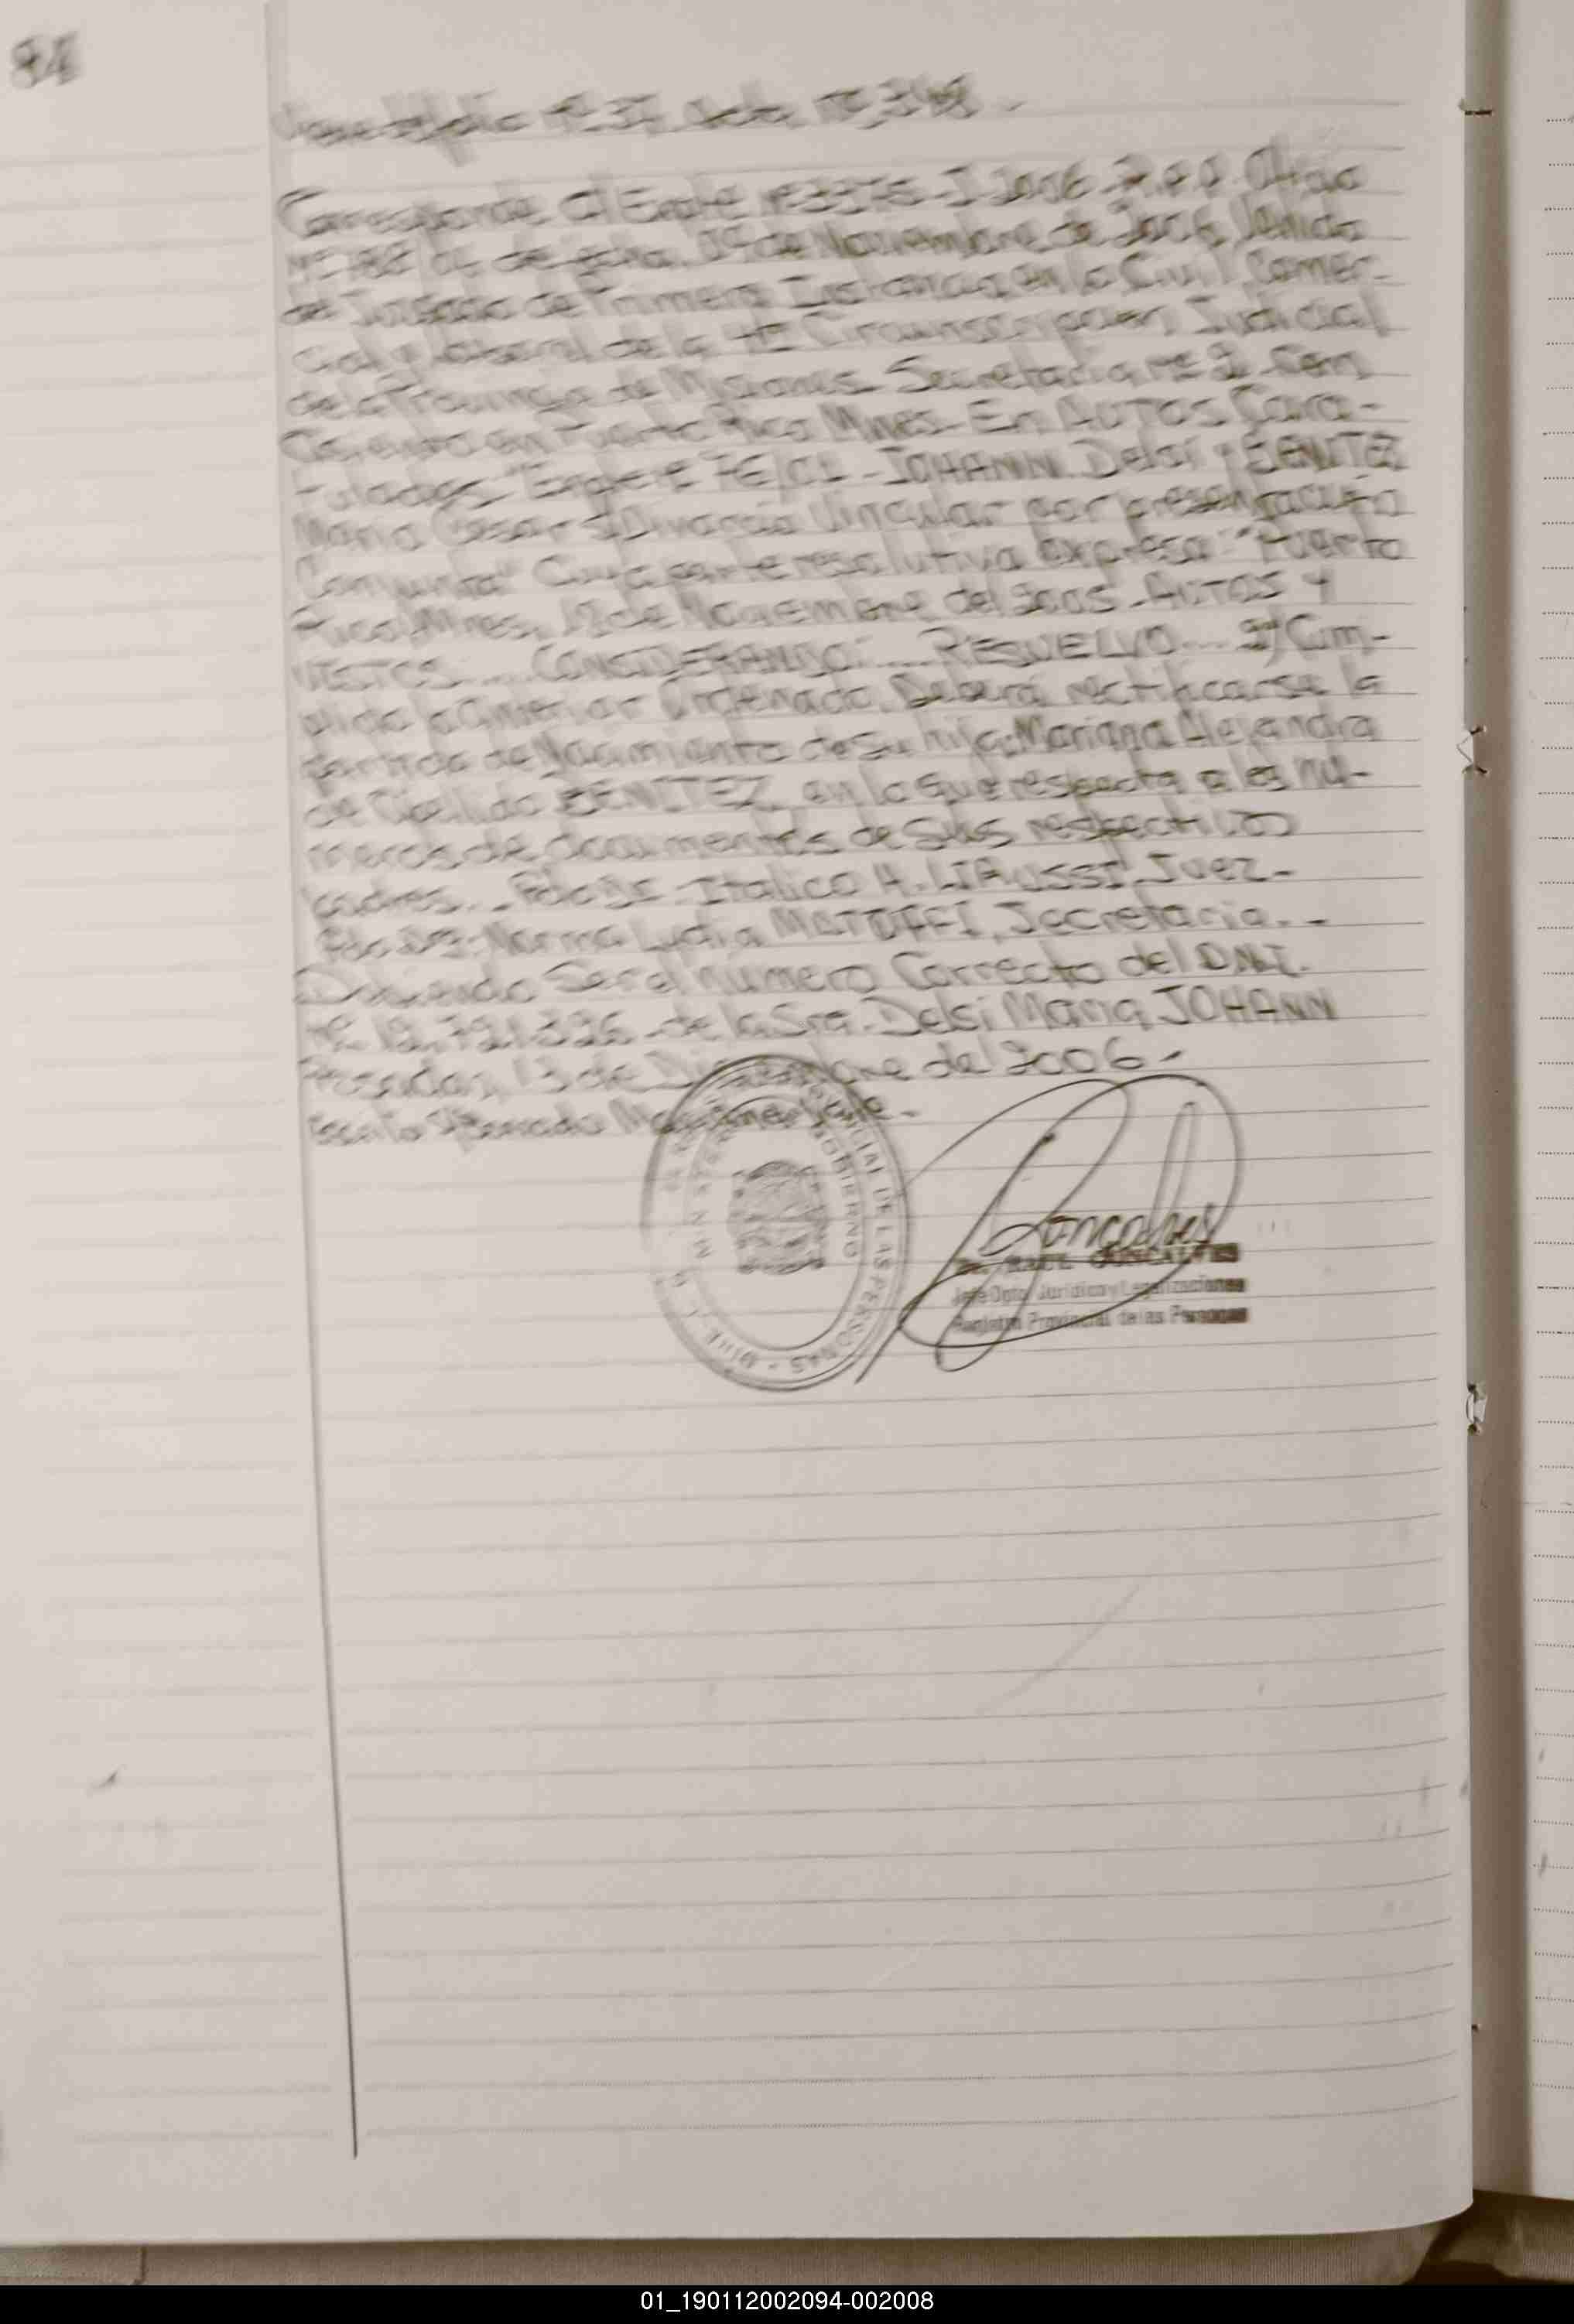 84
Viene del folio Nº 37 Acta Nº 348.-
Corresponde al Expte Nº 3375-I-2006 R.P.P. Oficio
de fecha 09 de Noviembre de 2006 Venido
de Juzgado de Primera Instancia en lo Civil, Comer-
cial y Laboral de la 4ta Circunscripcion Judicial
de la Provincia de Misiones Secretaria nº 2 Con
asiento en Puerto Rico Mnes- En AUTOS Cara-
tulados "Expte - JOHANN Delsi y BENITEZ
Mario Cesar s/Divorcio Vincular por presentación
Conjunta" Cuya parte resolutiva expresa: "Puerto
Rico, Mnes, de Noviembre del 2005 - AUTOS Y
VISTOS.... CONSIDERANDO:.... RESUELVO.... Cum-
plido lo anterior Ordenado, Deberá rectificarse la
partida de Nacimiento de su hija: Mariana Alejandra
de apellido BENITEZ, en lo que respecta a los nú-
meros de documentos de sus respectivos
padres.- Fdo Dr. Italico H. Juez.-
Fdo Norma Lydia Secretaria.-
Debiendo Ser el número Correcto del D.N.I.
Nº de la Sra. Delsi Maria JOHANN
Posadas, 13 de Diciembre del 2006-
Goncalves
Dr. RAUL GONCALVES
Jefe Dpto. Juridico y Legalizaciones
Registro Provincial de las Personas
PROVINCIAL DE LAS PERSONAS
GOBIERNO
01_190112002094-002008